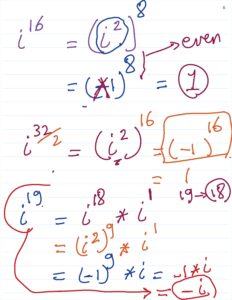 i^16 = (i^2)^8 → even
= (-1)^8 = 1
i^32/2 = (i^2)^16 = (-1)^16
= 1
19 → 18
i^19 = i^18 * i^1
= (i^2)^9 * i^1
= (-1)^9 * i = -1 * i
= -i